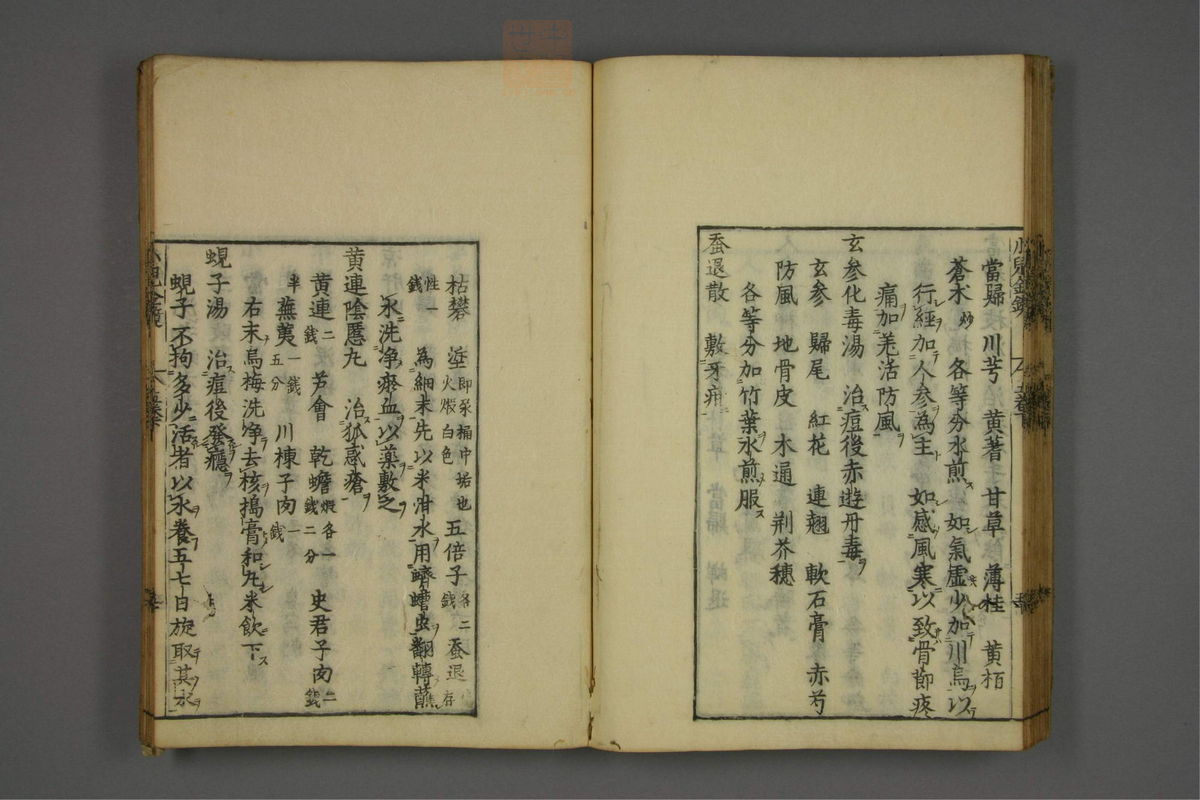 當歸 川芎 黄蓍 甘草 薄桂 黄栢
蒼术炒 各等分水煎 如氣虚少加川烏以
行經加人参為主 如感風寒以致骨節疼
痛加羌活防風
玄参化毒湯 治痘後赤遊丹毒
玄参 歸尾 紅花 連翹 軟石膏 赤芍
防風 地骨皮 木通 荆芥穂
各等分加竹葉水煎服
蚕退散 敷牙疳
枯礬 即尿桶中垢也火煅白色 五倍子各二錢 蚕退 存
性一錢 為細末先以米泔水用蠐螬虫翻轉蘸
水洗浄瘀血以薬敷之
黄連陰慝丸 治狐惑瘡
黄連二錢 芦會 乾蟾煆各一錢二分 史君子肉二錢
半 蕪荑一錢五分 川楝子肉一錢
右末烏梅洗浄去核搗膏和丸米飲下
蜆子湯 治痘後發癮
蜆子不拘多少活者以水養五七日旋取其水